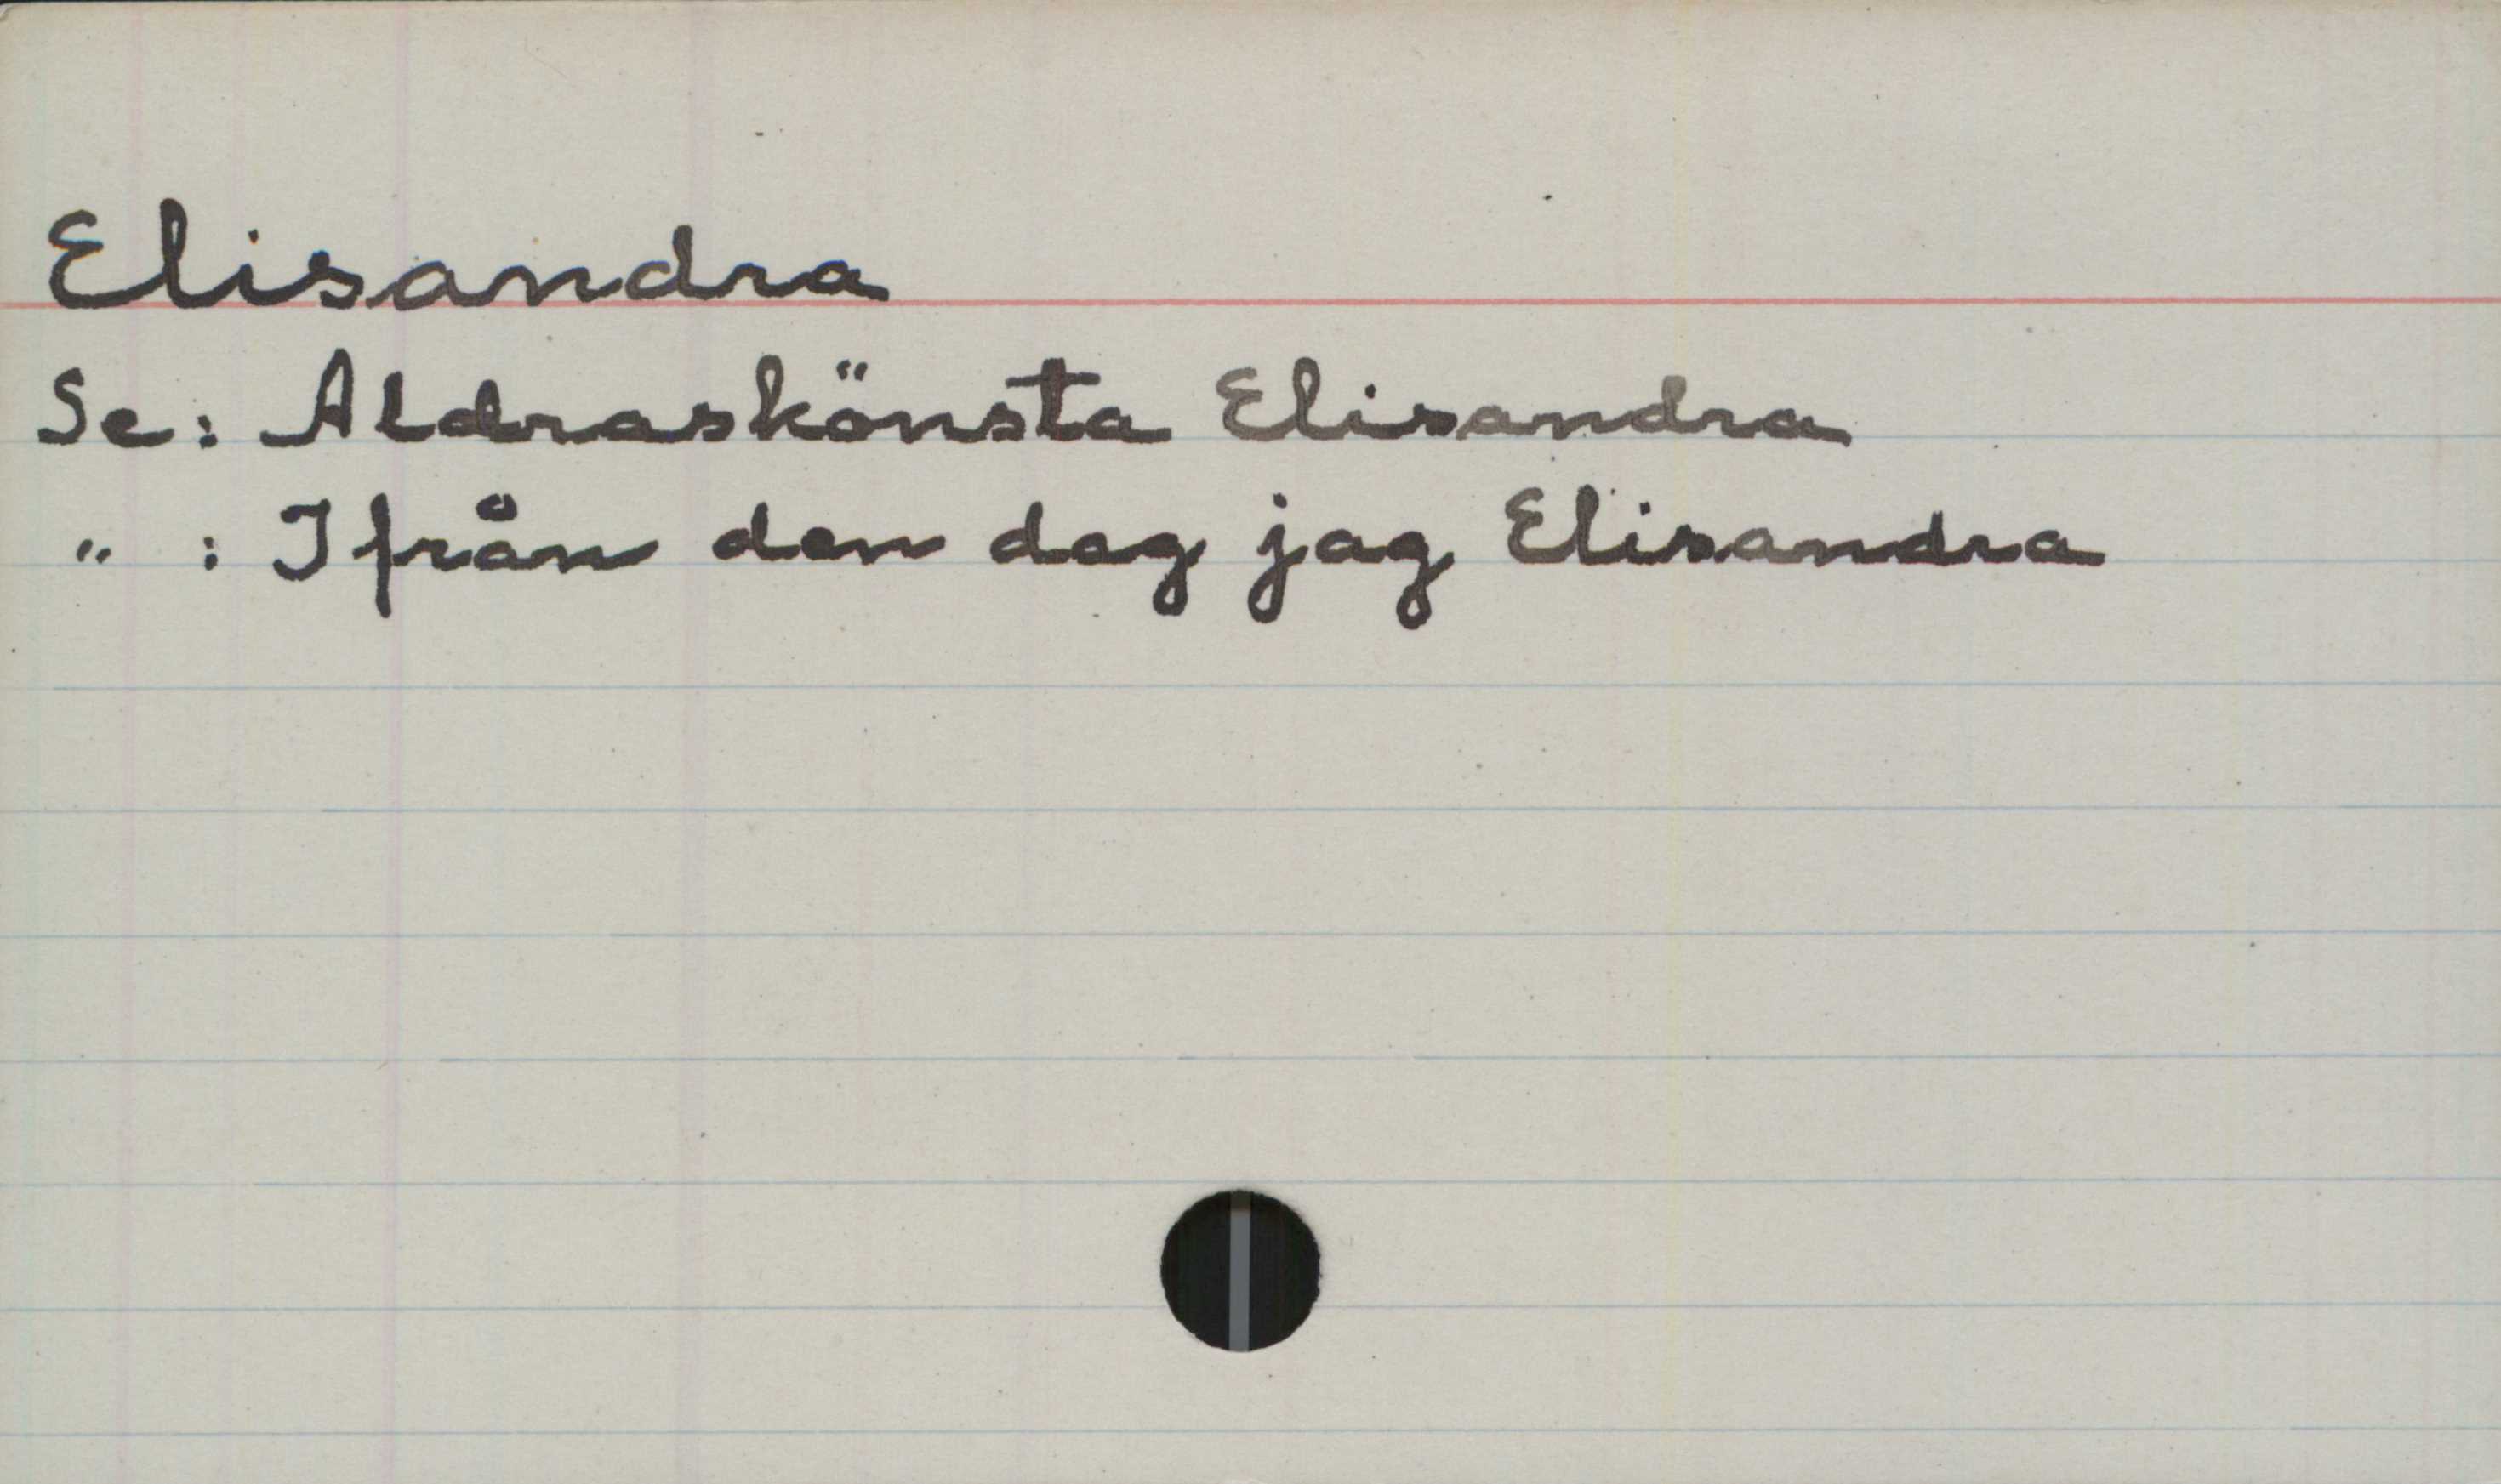 Elisandra
Se: Aldraskönsta Elisandra
" : Ifrån den dag jag Elisandra